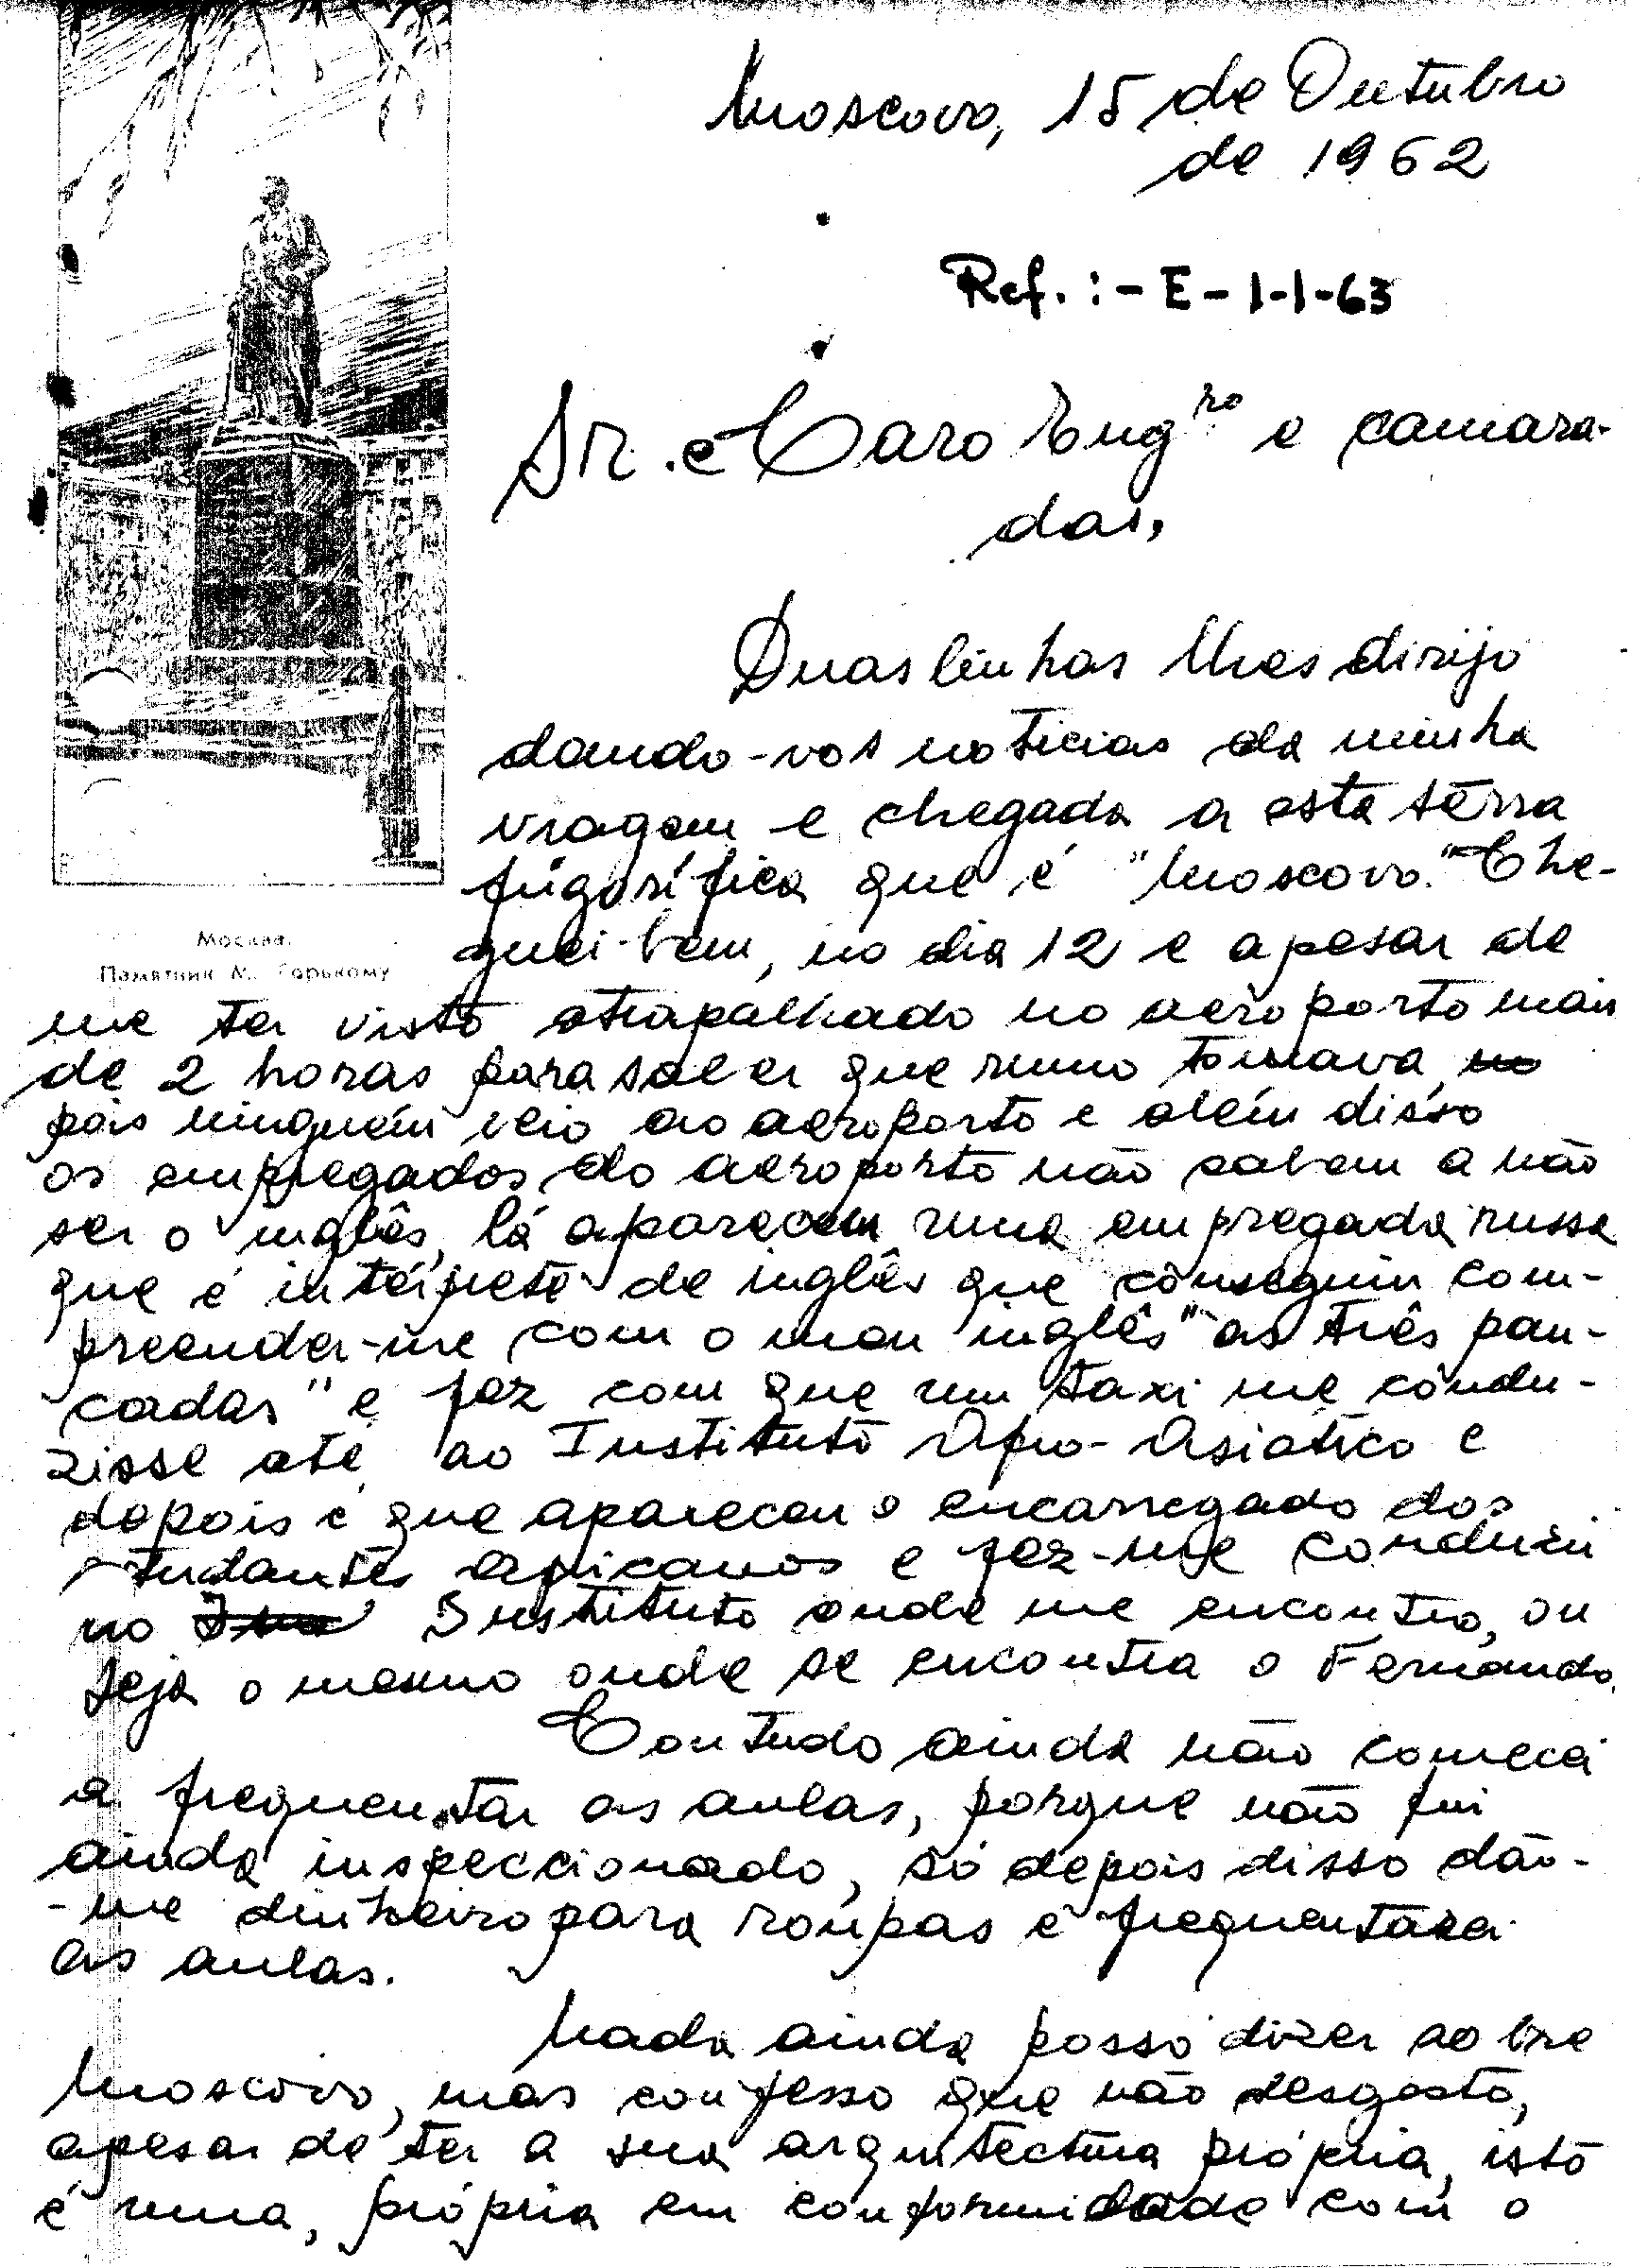 Moscovo, 15 de Outubro
de 1962
Ref. :- E-1-1-63
Sr. e Caro Engro e camara-
das,
Duas linhas lhes dirijo
dando-vos noticias da minha
viagem e chegada a esta terra
frigorífica que é "Moscovo." Che-
guei bem, no dia 12 e apesar de
Москва.
Памятник М. Горькому
me ter visto atrapalhado no aeroporto mais
de 2 horas para saber que rumo tomava, no
pois ninguém veio ao aeroporto e além disso
os empregados do aeroporto não sabem a não
ser o inglês, lá apareceu uma empregada russa
que é intérprete de inglês que conseguiu com-
preender-me com o meu inglês "as três pan-
cadas" e fez com que um taxi me condu-
zisse até ao Instituto Afro-Asiático e
depois é que apareceu o encarregado dos
studantes africanos e fez-me conduzir
no Instituto onde me encontro, ou
seja o mesmo onde se encontra o Fernando.
Contudo ainda não comecei
a frequentar as aulas, porque não fui
ainda inspeccionado, só depois disso dão-
-me dinheiro para roupas e frequentarei
as aulas.
Nada ainda posso dizer sobre
Moscovo, mas confesso que não desgosto,
apesar de ter a sua arquitectura própria, isto
é uma, própria em conformidade com o